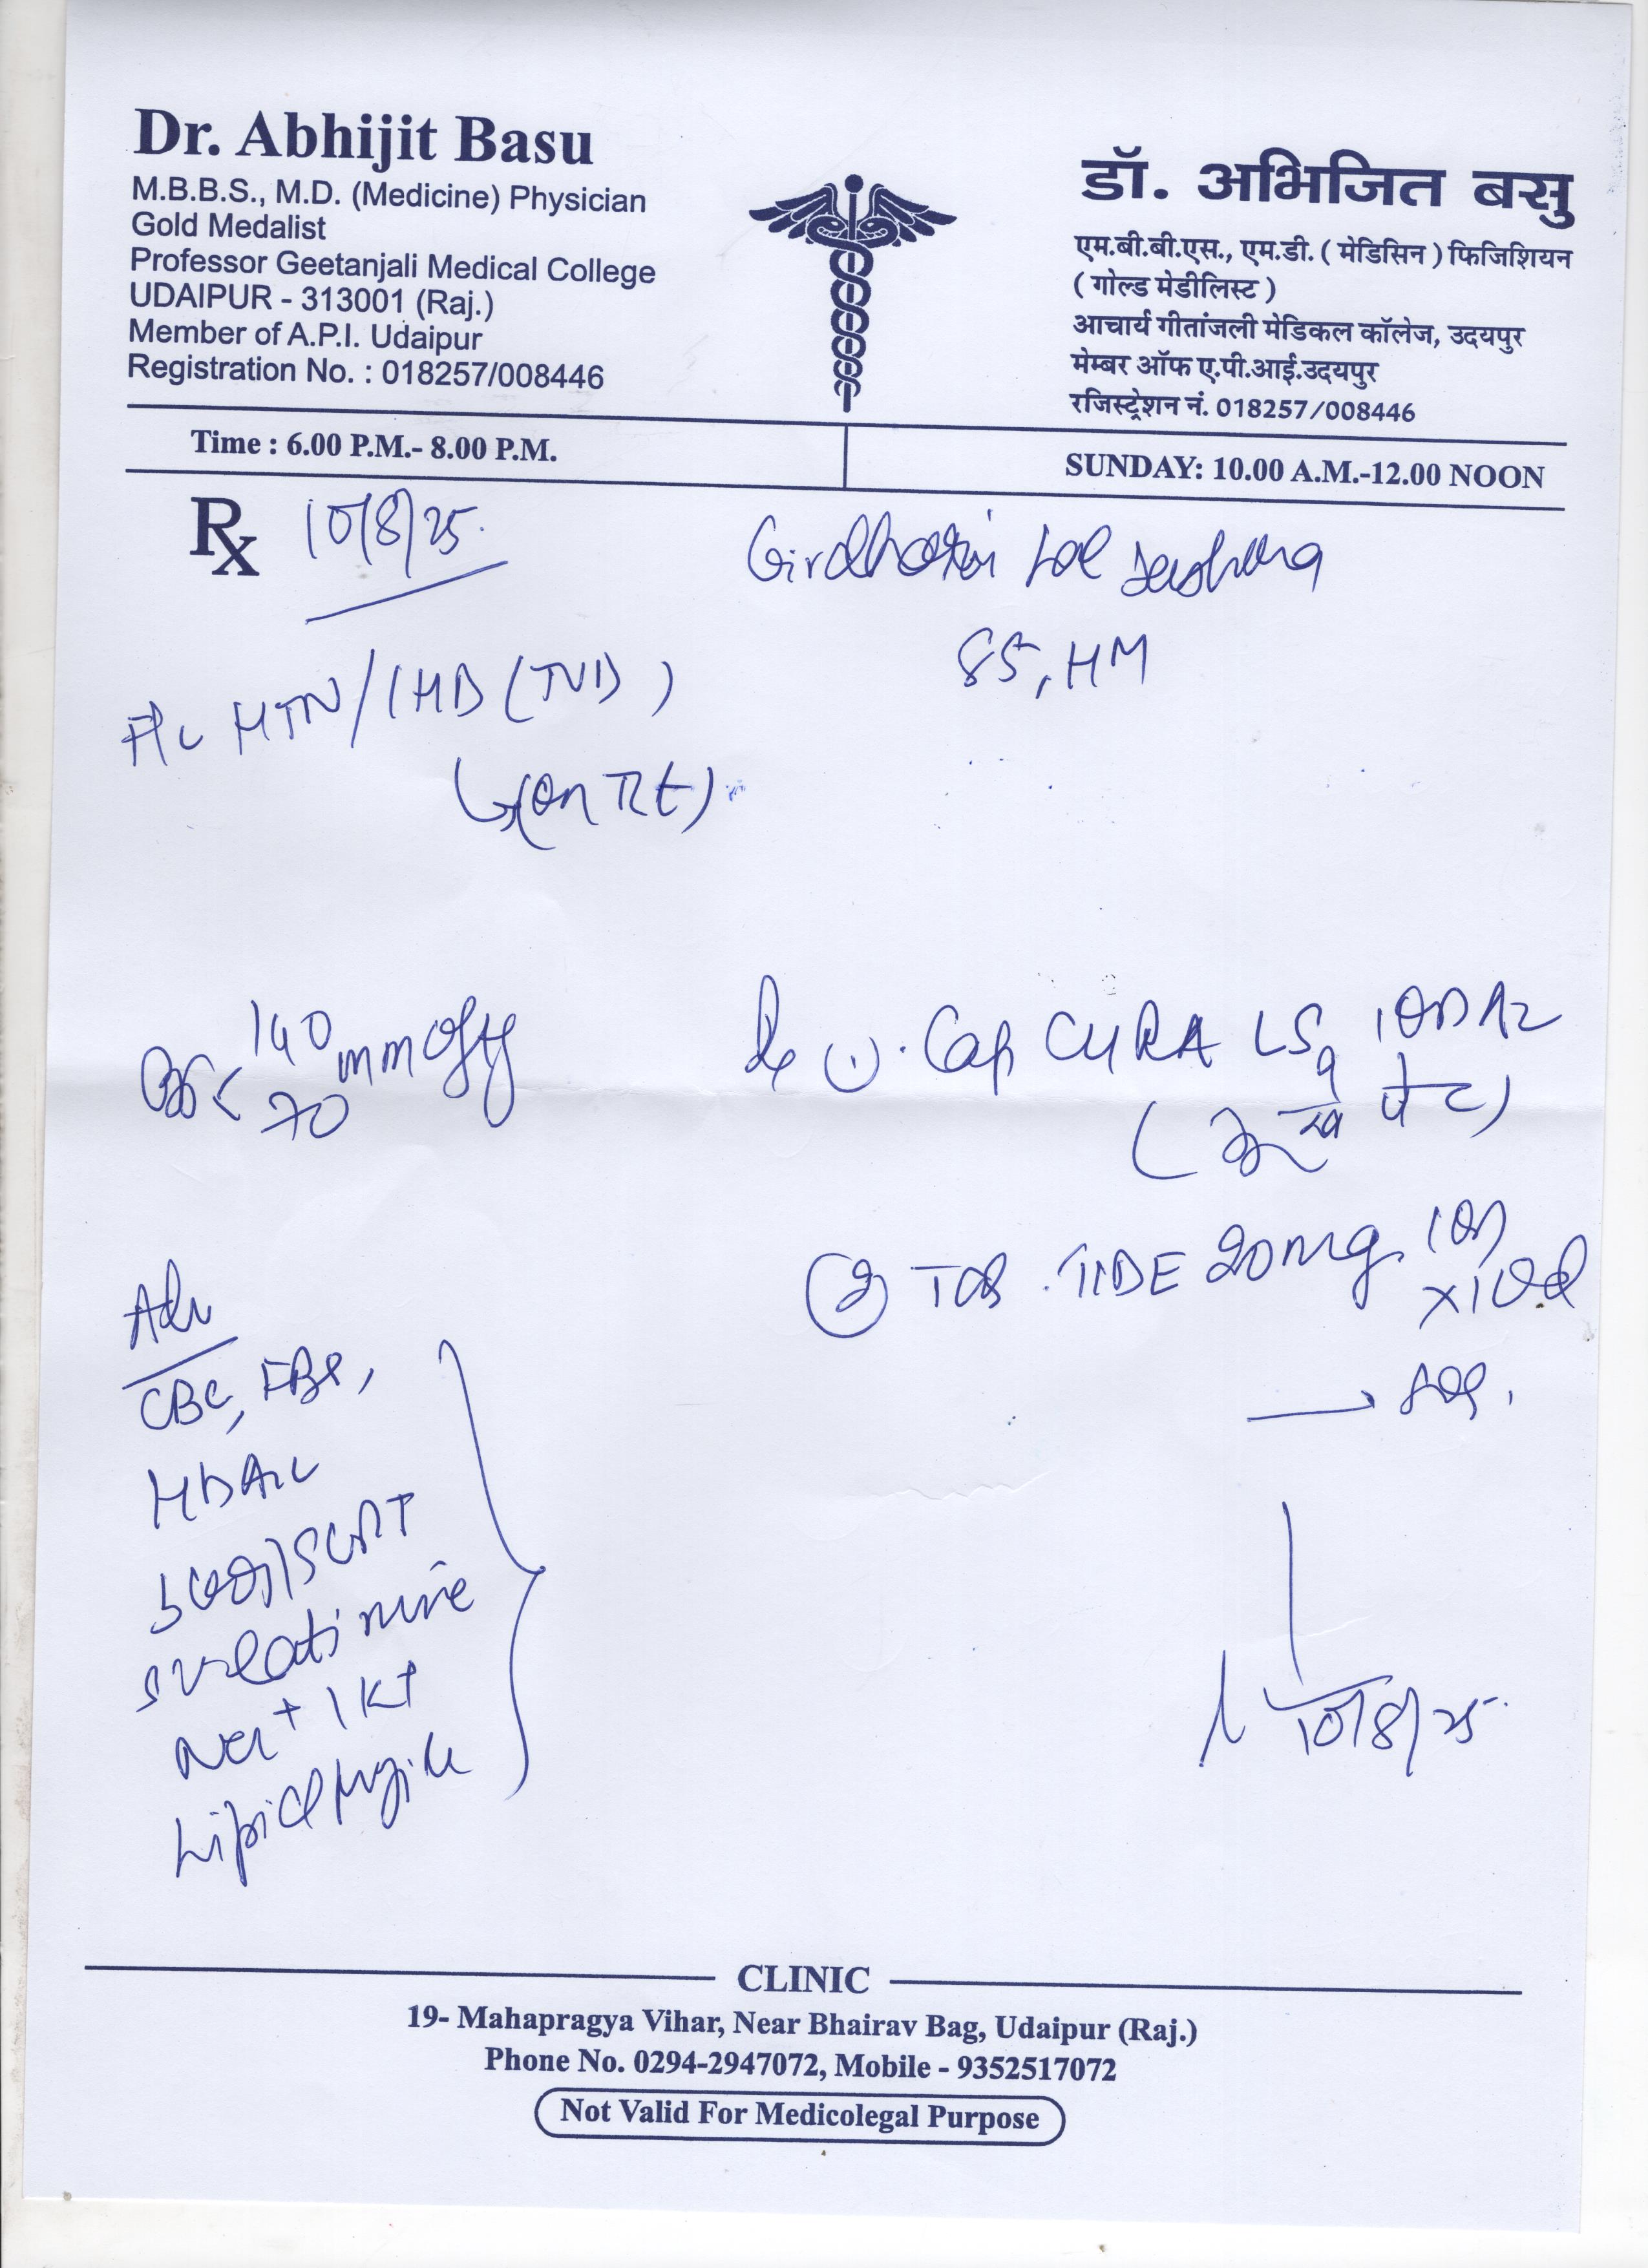 Dr. Abhijit Basu
M.B.B.S., M.D. (Medicine) Physician
Gold Medalist
Professor Geetanjali Medical College
UDAIPUR - 313001 (Raj.)
Member of A.P.I. Udaipur
Registration No. : 018257/008446
डॉ. अभिजित बसु
एम.बी.बी.एस., एम.डी. ( मेडिसिन ) फिजिशियन
( गोल्ड मेडीलिस्ट )
आचार्य गीतांजली मेडिकल कॉलेज, उदयपुर
मेम्बर ऑफ ए.पी.आई.उदयपुर
रजिस्ट्रेशन नं. 018257/008446
Time : 6.00 P.M.- 8.00 P.M.
SUNDAY: 10.00 A.M.-12.00 NOON
Rx 10/8/25.
Girdhari Lal
85, HM
HTN/IHD (TVD)
(on Rt)
140
70 mmHg
① . Cap CURA LS, 1OD
(भूखे पेट)
② Tab. TIDE 20mg. 1OD
x10d
Adv
CBC, FBS,
HbA1c
SGOT/SGPT
S creatinine
Na+ / K+
Lipid profile
10/8/25.
CLINIC
19- Mahapragya Vihar, Near Bhairav Bag, Udaipur (Raj.)
Phone No. 0294-2947072, Mobile - 9352517072
Not Valid For Medicolegal Purpose